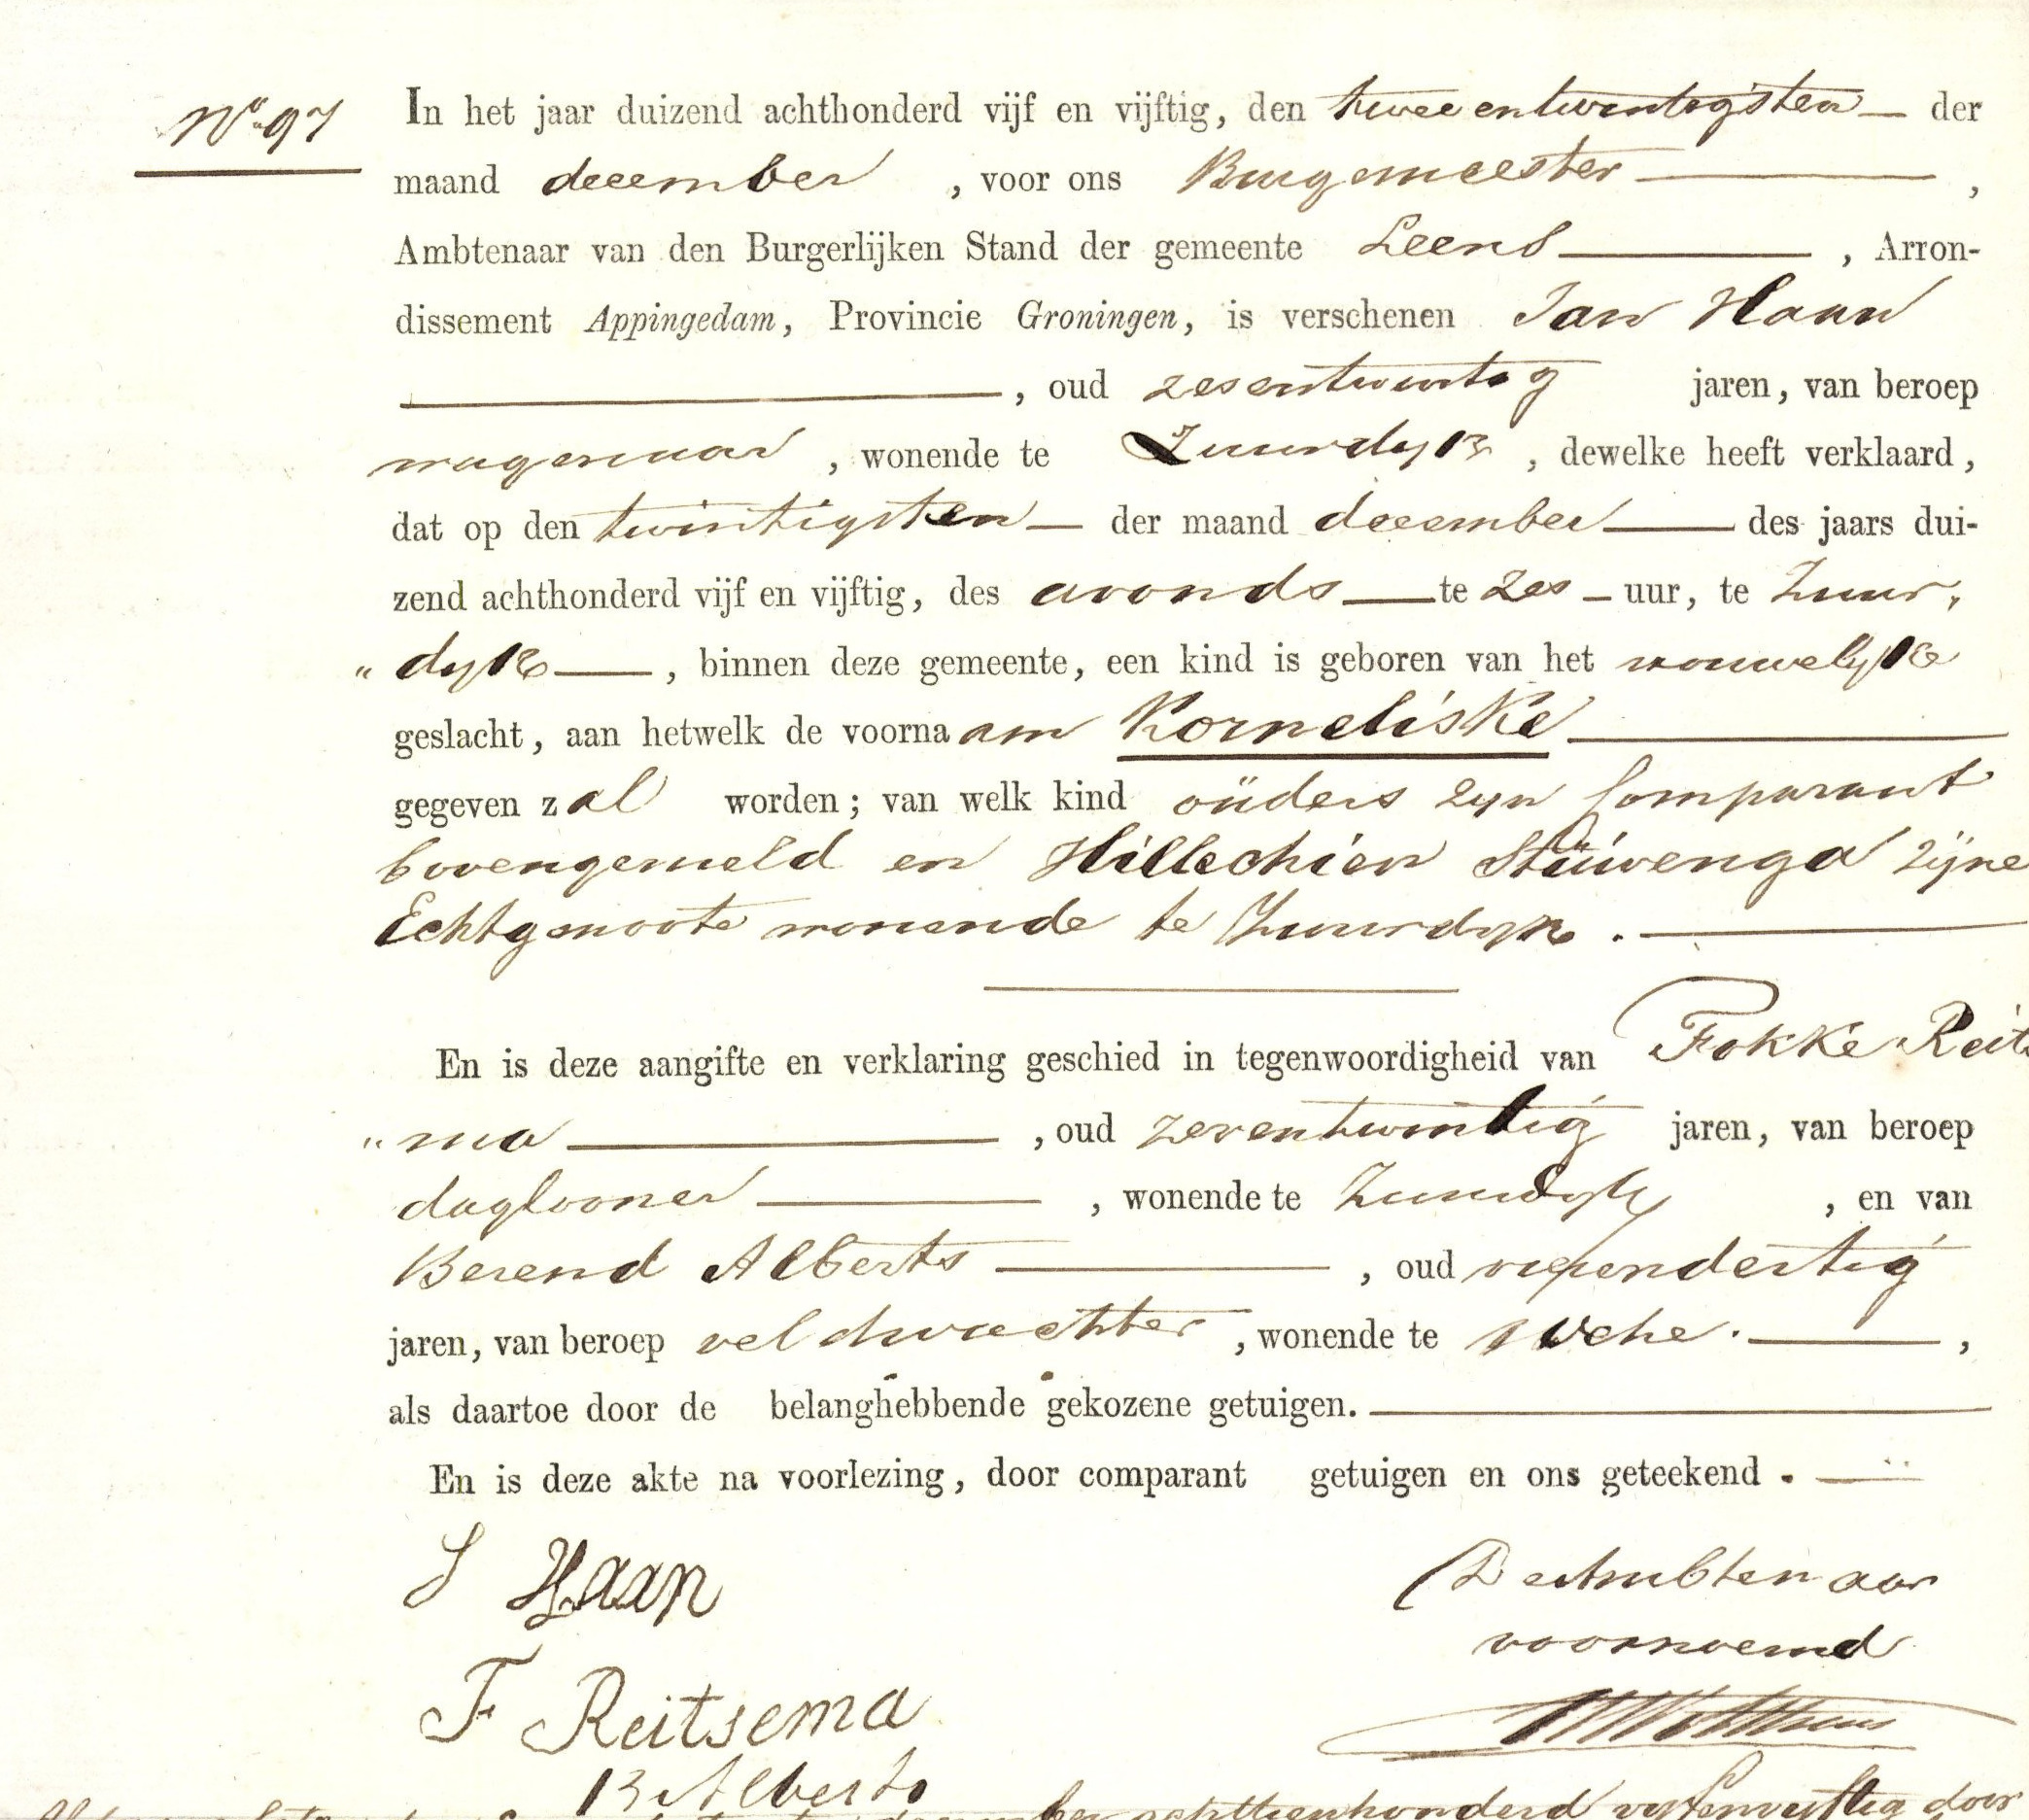 No 97
In het jaar duizend achthonderd vijf en vijftig, den tweeentwintigsten — der
maand december , voor ons Burgemeester — ,
Ambtenaar van den Burgerlijken Stand der gemeente Leens — , Arron-
dissement Appingedam, Provincie Groningen, is verschenen Jan Haan
— , oud zesentwintig jaren, van beroep
wagenaar , wonende te Zuurdyk , dewelke heeft verklaard,
dat op den twintigsten — der maand december — des jaars dui-
zend achthonderd vijf en vijftig, des avonds — te zes — uur, te Zuur„
„ dyk — , binnen deze gemeente, een kind is geboren van het vrouwelyke
geslacht, aan hetwelk de voornaam Korneliske —
gegeven zal worden; van welk kind ouders zyn Comparant
bovengemeld en Hillechien Stuivenga zijne
Echtgenoote wonende te Zuurdyk . —
En is deze aangifte en verklaring geschied in tegenwoordigheid van Fokke Reits
„ ma — , oud zevenentwintig jaren, van beroep
daglooner — , wonende te Zuurdyk , en van
Berend Alberts — , oud vierendertig
jaren, van beroep veldwachter , wonende te Wehe . — ,
als daartoe door de belanghebbende gekozene getuigen. —
En is deze akte na voorlezing, door comparant getuigen en ons geteekend . —
J Haan
De Ambtenaar
voornoemd
F Reitsema
B Alberts
achttienhonderd vyfenvyftig door